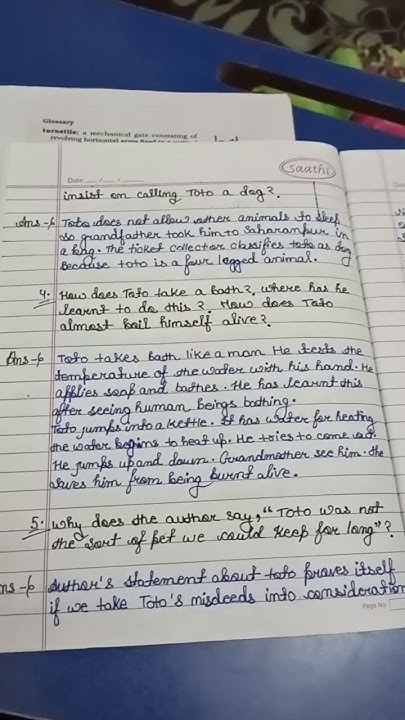 Glossary
turnstile: a mechanical gate consisting of
revolving horizontal arms fixed to a
Saathi
Date
insist on calling Toto a dog?
Ans- Toto does not allow other animals to sleep
so grandfather took him to Saharanpur in
a bag. The ticket collector classifies toto as dog
because toto is a four legged animal.
4. How does Toto take a bath?, where has he
learnt to do this?. How does Toto
almost boil himself alive?
Ans- Toto takes bath like a man. He tests the
temperature of the water with his hand. He
applies soap and bathes. He has learnt this
after seeing human beings bathing.
Toto jumps into a kettle. It has water for heating
the water begins to heat up. He tries to come out.
He jumps up and down. Grandmother see him. She
saves him from being burnt alive.
5. Why does the author say, "Toto was not
the sort of pet we could keep for long"?
Ans- Author's statement about toto proves itself
if we take Toto's misdeeds into consideration
Page No.